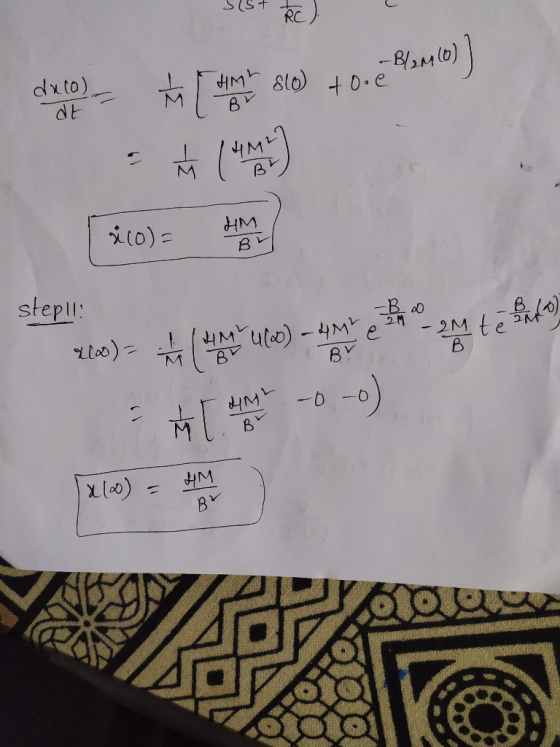 S(S+ 1/RC)
dx(0)/dt = 1/M [ 4M²/B² δ(0) + 0·e^(-B/2M(0)) ]
= 1/M ( 4M²/B² )
ẋ(0) = 4M/B²
step11:
x(∞) = 1/M ( 4M²/B² u(∞) - 4M²/B² e^(-B/2M ∞) - 2M/B t e^(-B/2M (∞))
= 1/M [ 4M²/B² -0 -0 )
x(∞) = 4M/B²